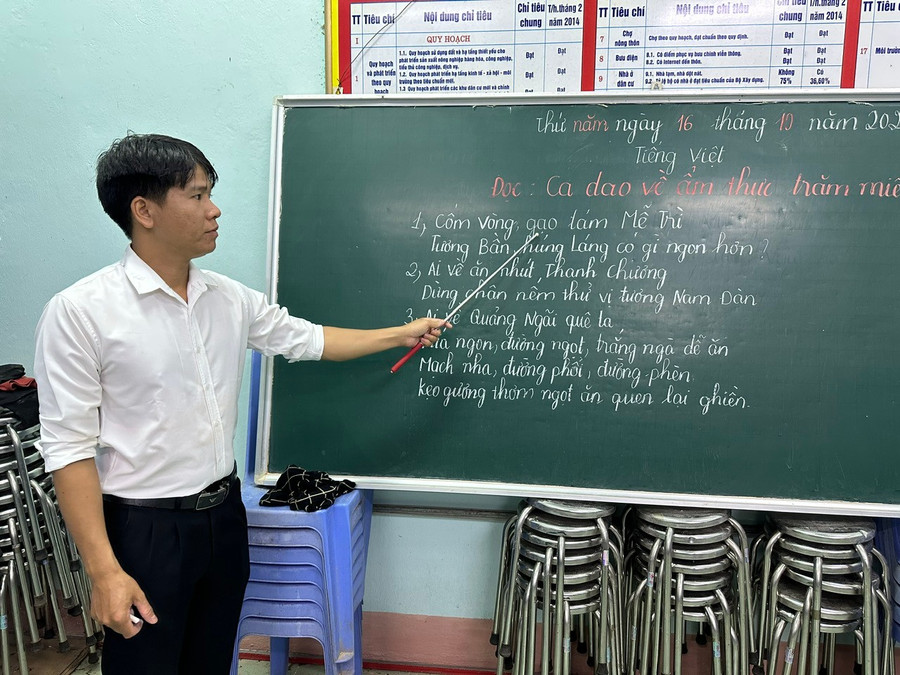 TT Tiêu chí Nội dung chỉ tiêu Chỉ tiêu chung T/h.tháng 2 năm 2014
I QUY HOẠCH
1 Quy hoạch và phát triển theo quy hoạch
1.1. Quy hoạch sử dụng đất và hạ tầng thiết yếu cho phát triển sản xuất nông nghiệp hàng hóa, công nghiệp, tiểu thủ công nghiệp, dịch vụ. Đạt Đạt
1.2. Quy hoạch phát triển hạ tầng kinh tế - xã hội - môi trường theo tiêu chuẩn mới. Đạt Đạt
1.3 Quy hoạch phát triển các khu dân cư mới và chỉnh
TT Tiêu chí Nội dung chỉ tiêu Chỉ tiêu chung T/h.tháng 2 năm 2014
7 Chợ nông thôn Chợ theo quy hoạch, đạt chuẩn theo quy định. Đạt Đạt
8 Bưu điện 8.1. Có điểm phục vụ bưu chính viễn thông. Đạt Đạt
8.2. Có Internet đến thôn. Đạt Đạt
9 Nhà ở dân cư 9.1. Nhà tạm, nhà dột nát. Không Có
hộ có nhà ở đạt tiêu chuẩn của Bộ Xây dựng. 75% 36,60%
TT Tiêu
17 Môi trườ
Thứ năm ngày 16 tháng 10 năm 202
Tiếng Việt
Đọc : Ca dao về ẩm thực trăm miề
1, Cốm Vòng, gạo tám Mễ Trì
Tương Bần, húng Láng có gì ngon hơn ?
2, Ai về ăn nhút Thanh Chương
Dừng chân nếm thử vị tương Nam Đàn
3, Ai về Quảng Ngãi quê ta
ngon, đường ngọt, trắng ngà dễ ăn
Mạch nha, đường phổi, đường phèn
Kẹo gương thơm ngọt ăn quen lại ghiền.